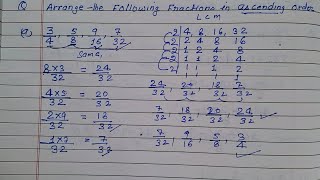 Q Arrange the Following Fractions in Ascending order
L C M
a) 3/4, 5/8, 9/16, 7/32
2 | 4, 8, 16, 32
2 | 2 4 8 16
2 | 1 2 4 8
2 | 1 1 2 4
1 1 1 2
8×3/32 = 24/32
4×5/32 = 20/32
24/32, 20/32, 18/32, 7/32
2×9/32 = 18/32
7/32, 18/32, 20/32, 24/32
1×7/32 = 7/32
7/32, 9/16, 5/8, 3/4